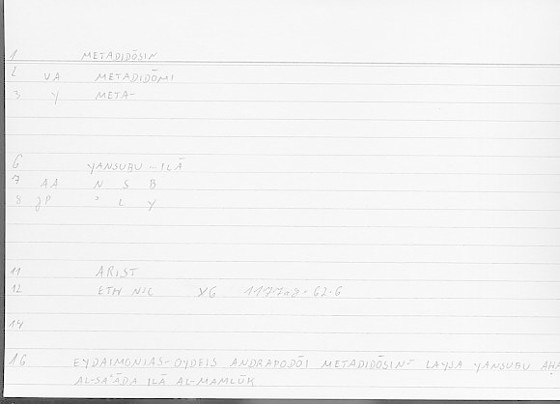 1 METADIDŌSIN
2 VA METADIDŌMI
3 Y META-
6 YANSUBU-ILĀ
7 AA N S B
8 JP ʾ L Y
11 ARIST
12 ETH NIC
14
16 EYDAIMONIAS-OYDEIS ANDRAPODŌI METADIDŌSIN- LAYSA YANSUBU AḤA
AL-SAʿĀDA ILĀ AL-MAMLŪK